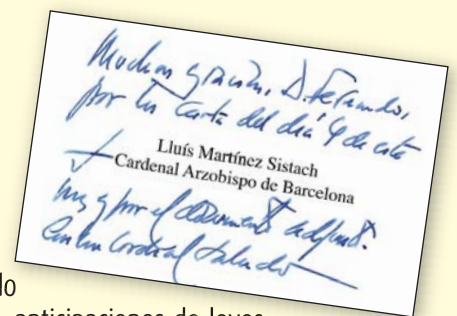 Muchas gracias, D. Fernando,
por tu carta del día 9 de este
Lluís Martínez Sistach
Cardenal Arzobispo de Barcelona
mes y por el documento adjunto.
Con un cordial saludo
do
anticipaciones de leyes